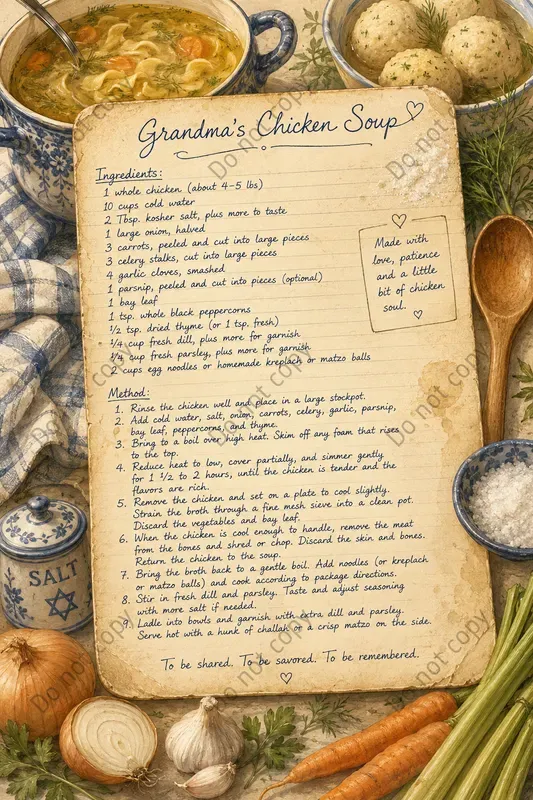 Grandma's Chicken Soup
Ingredients:
1 whole chicken (about 4-5 lbs)
10 cups cold water
2 Tbsp. kosher salt, plus more to taste
1 large onion, halved
3 carrots, peeled and cut into large pieces
3 celery stalks, cut into large pieces
4 garlic cloves, smashed
1 parsnip, peeled and cut into pieces (optional)
1 bay leaf
1 tsp. whole black peppercorns
1/2 tsp. dried thyme (or 1 tsp. fresh)
1/4 cup fresh dill, plus more for garnish
1/4 cup fresh parsley, plus more for garnish
2 cups egg noodles or homemade kreplach or matzo balls
Made with
love, patience
and a little
bit of chicken
soul.
Method:
1. Rinse the chicken well and place in a large stockpot.
2. Add cold water, salt, onion, carrots, celery, garlic, parsnip,
bay leaf, peppercorns, and thyme.
3. Bring to a boil over high heat. Skim off any foam that rises
to the top.
4. Reduce heat to low, cover partially, and simmer gently
for 1 1/2 to 2 hours, until the chicken is tender and the
flavors are rich.
5. Remove the chicken and set on a plate to cool slightly.
Strain the broth through a fine mesh sieve into a clean pot.
Discard the vegetables and bay leaf.
6. When the chicken is cool enough to handle, remove the meat
from the bones and shred or chop. Discard the skin and bones.
Return the chicken to the soup.
7. Bring the broth back to a gentle boil. Add noodles (or kreplach
or matzo balls) and cook according to package directions.
8. Stir in fresh dill and parsley. Taste and adjust seasoning
with more salt if needed.
9. Ladle into bowls and garnish with extra dill and parsley.
Serve hot with a hunk of challah or a crisp matzo on the side.
To be shared. To be savored. To be remembered.
SALT
Do not copy
Do not copy
Do not copy
Do not copy
Do not copy
Do not copy
Do not copy
Do not copy
Do not copy
Do not copy
Do not copy
Do not copy